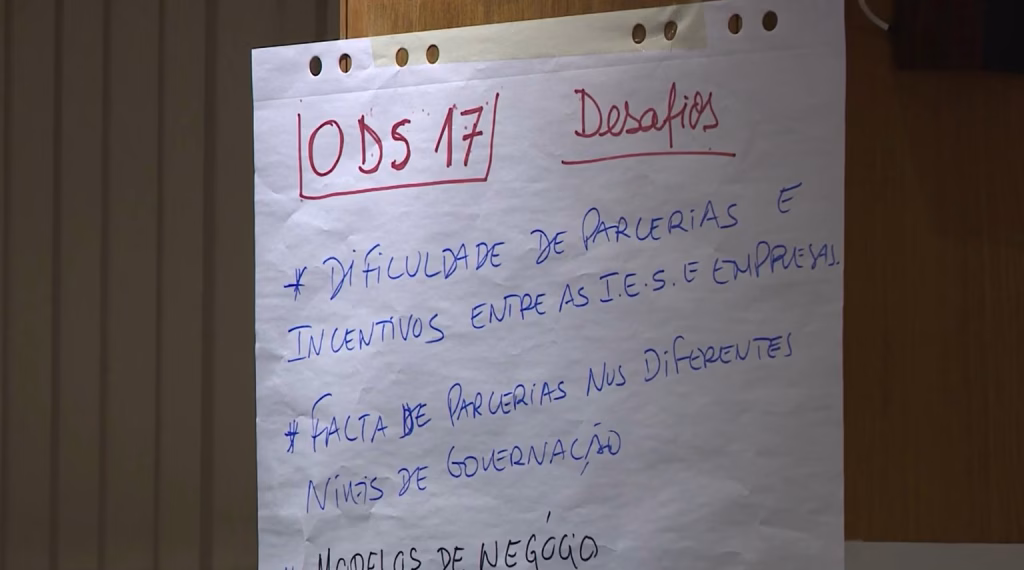 ODS 17
Desafios
* DIFICULDADE DE PARCERIAS E
INCENTIVOS ENTRE AS I.E.S. E EMPRESAS.
* FALTA DE PARCERIAS NOS DIFERENTES
NÍVEIS DE GOVERNAÇÃO
* MODELOS DE NEGÓCIO